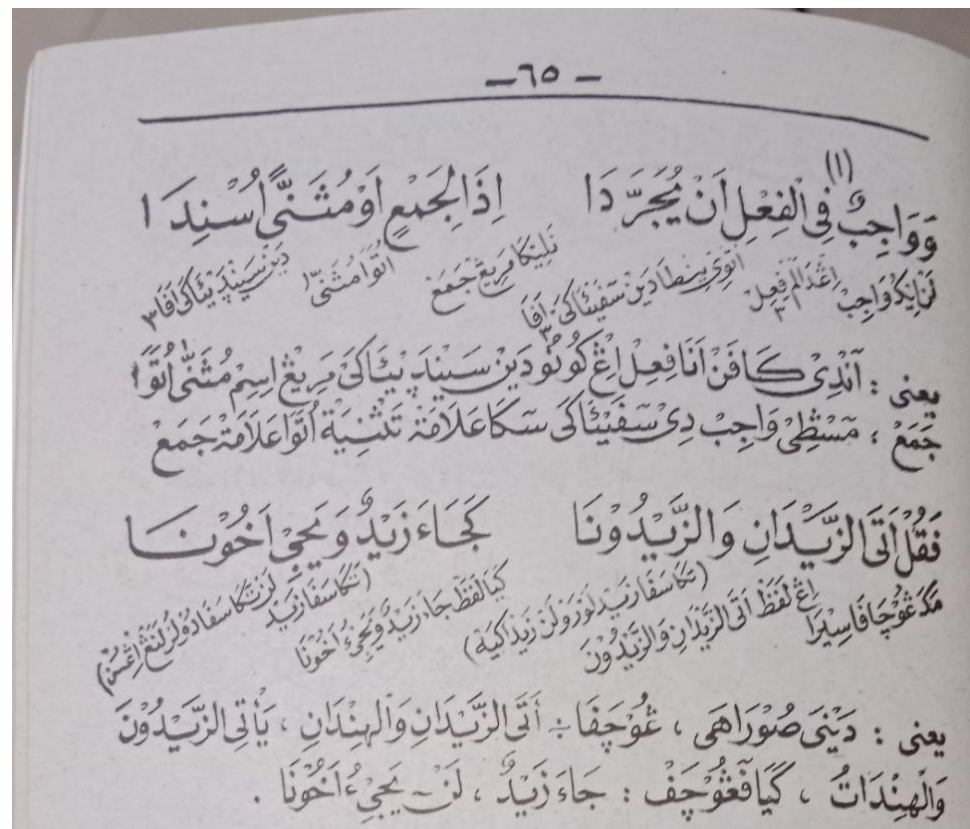 – ٦٥ –
(١)
وَوَاجِبٌ فِى الْفِعْلِ اَنْ يُجَرَّدَا اِذَا لِجَمْعٍ اَوْ مُثَنًّى اُسْنِدَا
لن ايكو واجب اغدالم فعل اتوى ينطا دين سفيئاكى افا نليكا مريغ جمع اتوا مثنى دين سيندييئاكى افا ٣
يعنى : آندى كافن انا فعل اغ كونو دين سينديڽاكى مريغ اسم مثنى اتوا
جمع ، مسطى واجب دى سفيڽاكى سكا علامة تثنية اتوا علامة جمع
فَقُلْ اَتَى الزَّيْدَانِ وَالزَّيْدُوْنَا كَجَاءَ زَيْدٌ وَيَجِيْ اَخُوْنَا
مك غوچافا سيرا اغ لفظ اتى الزيدان والزيدون (تكا سفا زيد لورو لن زيد اكيه) كيا لفظ جاء زيد ويجيء اخونا (تكا سفا زيد لن تكا سفا دولر لنغ اغسن)
يعنى : ديني صوراهى ، غوچفا : أَتَى الزَّيْدَانِ وَالْهِنْدَانِ ، يَأْتِى الزَّيْدُوْنَ
وَالْهِنْدَاتُ ، كيا فغوچف : جَاءَ زَيْدٌ ، لن يَجِيْءُ اَخُوْنَا .